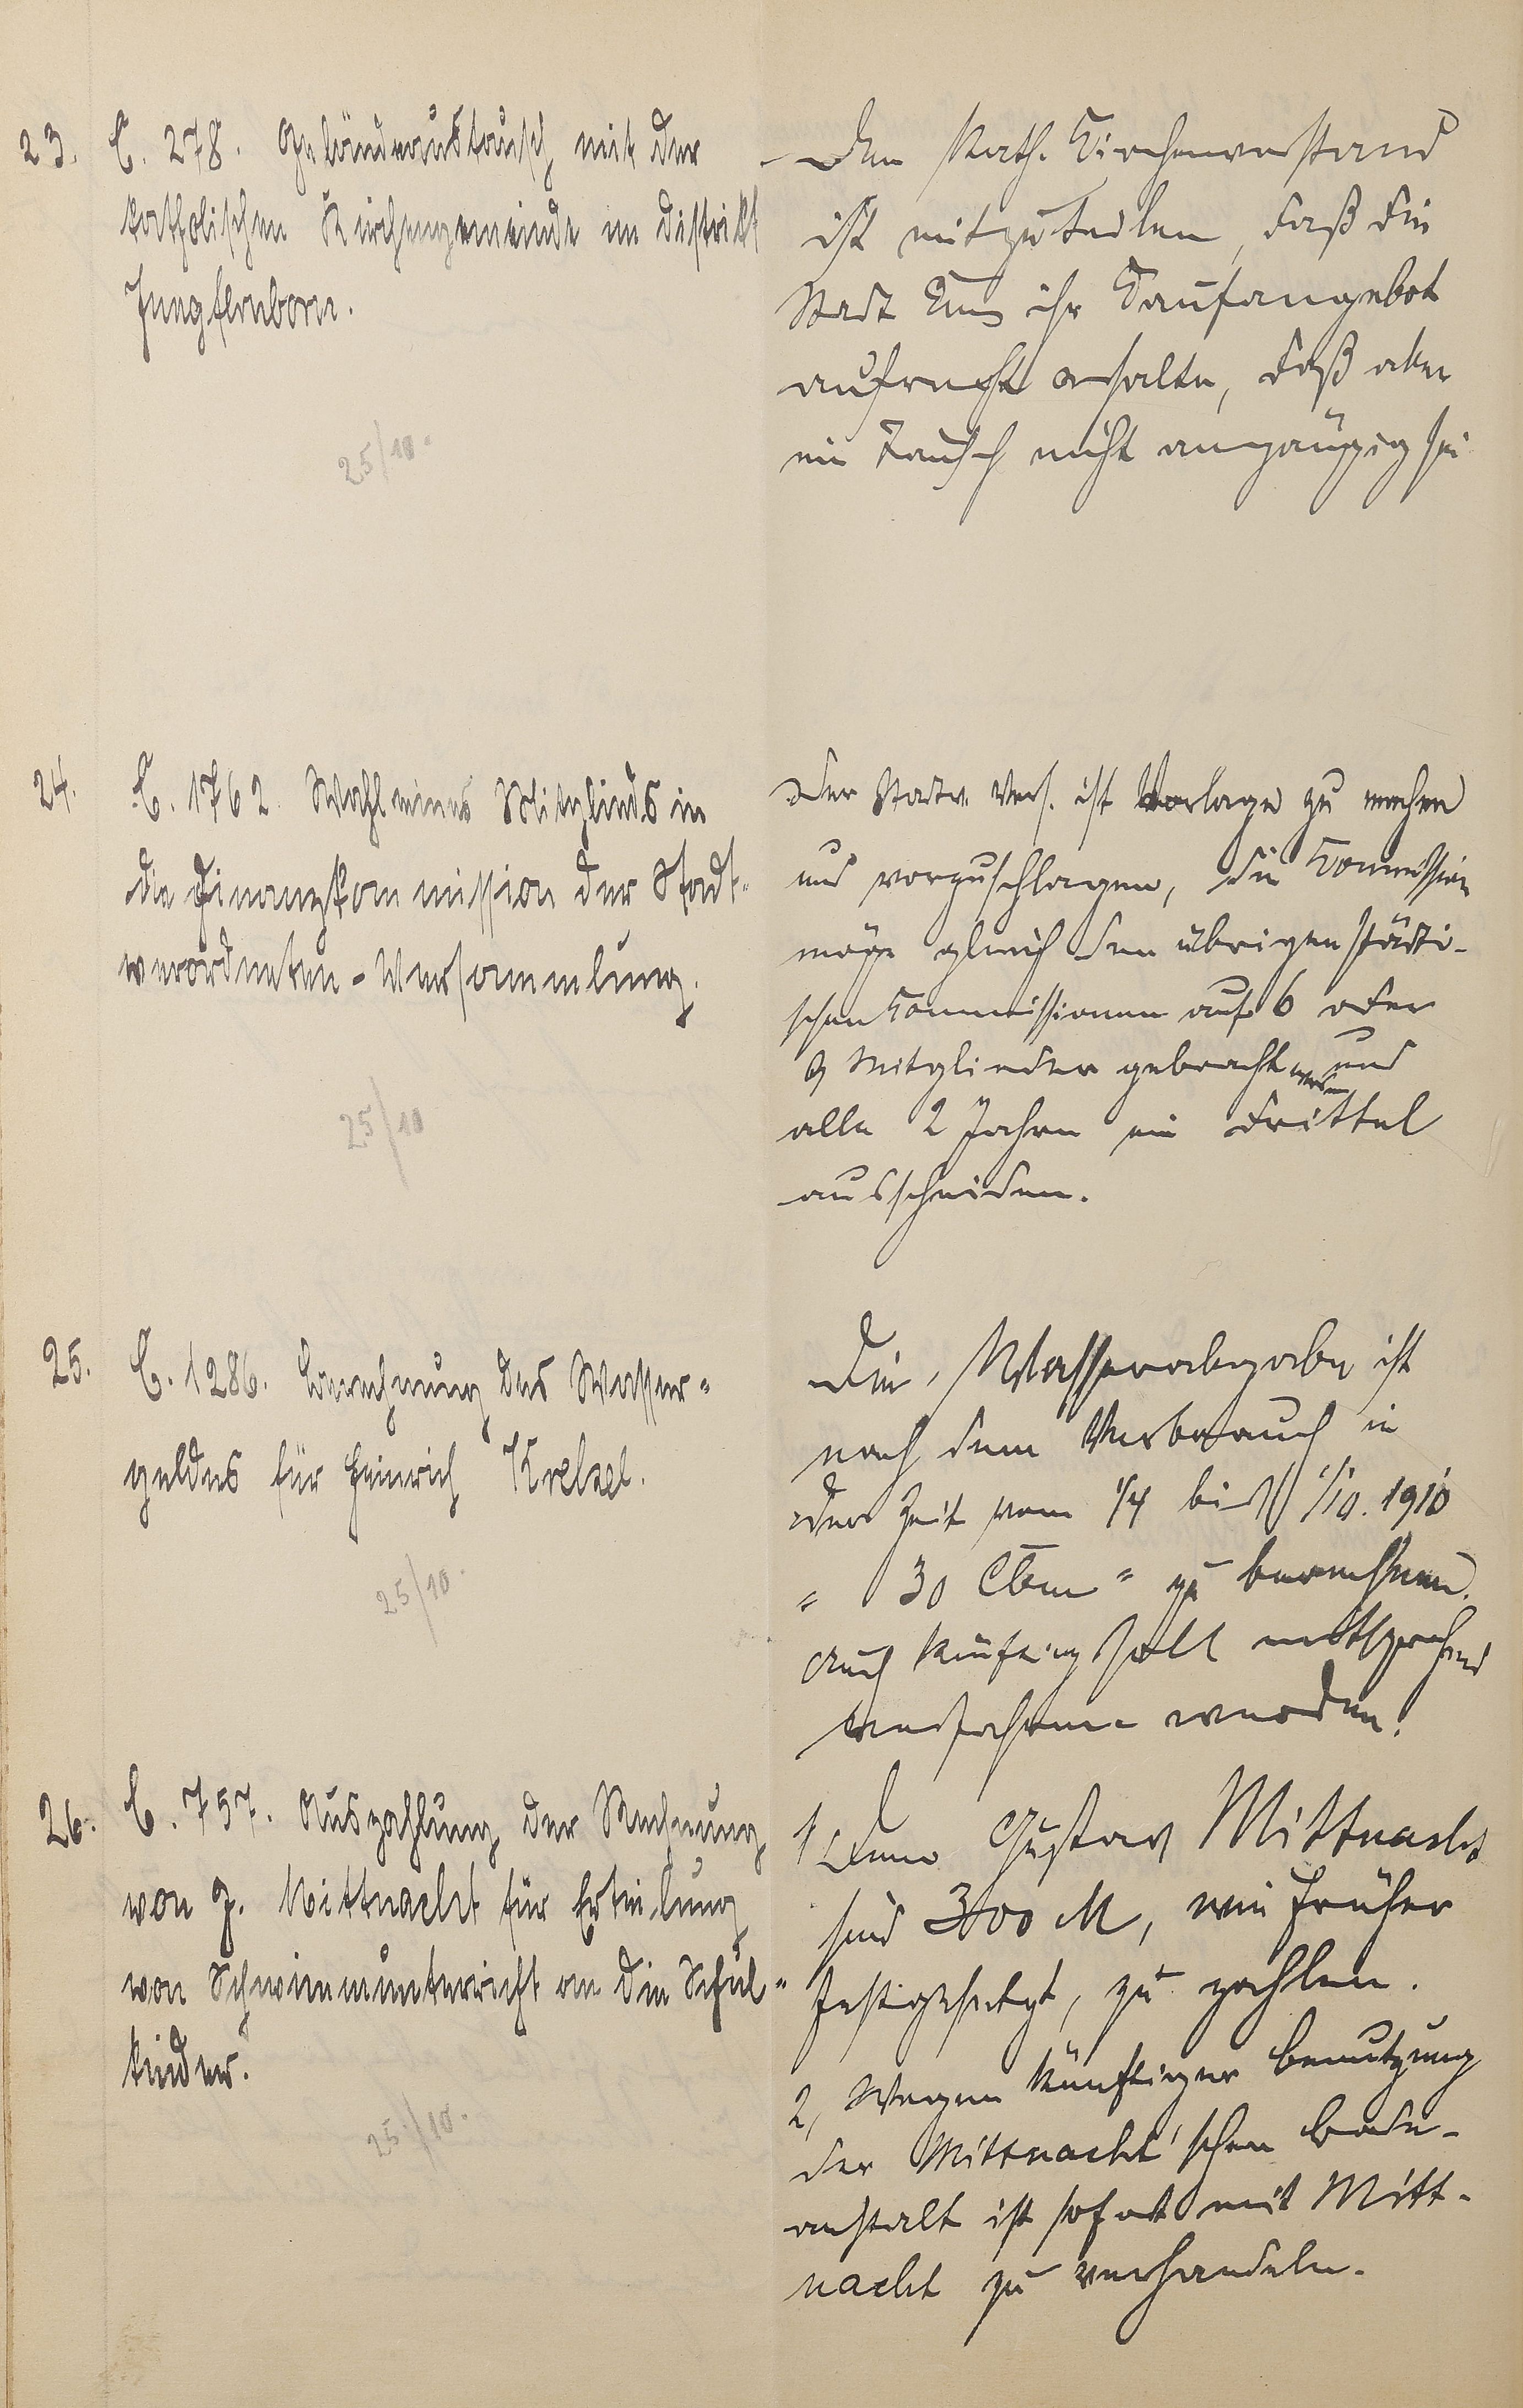 23. C. 278. Geländeaustausch mit der
katholischen Kirchengemeinde im Distrikt
Jungfernborn.
25/10.
Dem Kath. Kirchenvorstand
ist mitzuteilen, daß die
Stadt Ems ihr Kaufangebot
aufrecht erhalte, daß aber
ein Tausch nicht angängig sei
24. C. 1762 Wahl eines Mitglieds in
die Finanzkommission der Stadt-
verordneten-Versammlung.
25/10
Der Stadtv. Vers. ist Vorlage zu machen
und vorzuschlagen, die Commission
möge gleich den übrigen städti-
schen Commissionen auf 6 oder
9 Mitglieder gebracht werden und
alle 2 Jahre ein Drittel
ausscheiden.
25. C. 1286. Berechnung des Wasser-
geldes für Heinrich Krebsel.
25/10.
Die Wasserabgabe ist
nach dem Verbrauch in
der Zeit vom 1/4 bis 1/10. 1910
" 30 Cbm " zu berechnen.
Auch künftig soll entsprechend
verfahren werden.
26. C. 757. Auszahlung der Rechnung
von G. Mittnacht für Erteilung
von Schwimmunterricht an die Schul-
kinder.
25/10.
1 Dem Gustav Mittnacht
sind 300 M, wie früher
festgesetzt, zu zahlen.
2, Wegen künftiger Benutzung
der Mittnacht'schen Bade-
anstalt ist sofort mit Mitt-
nacht zu verhandeln.